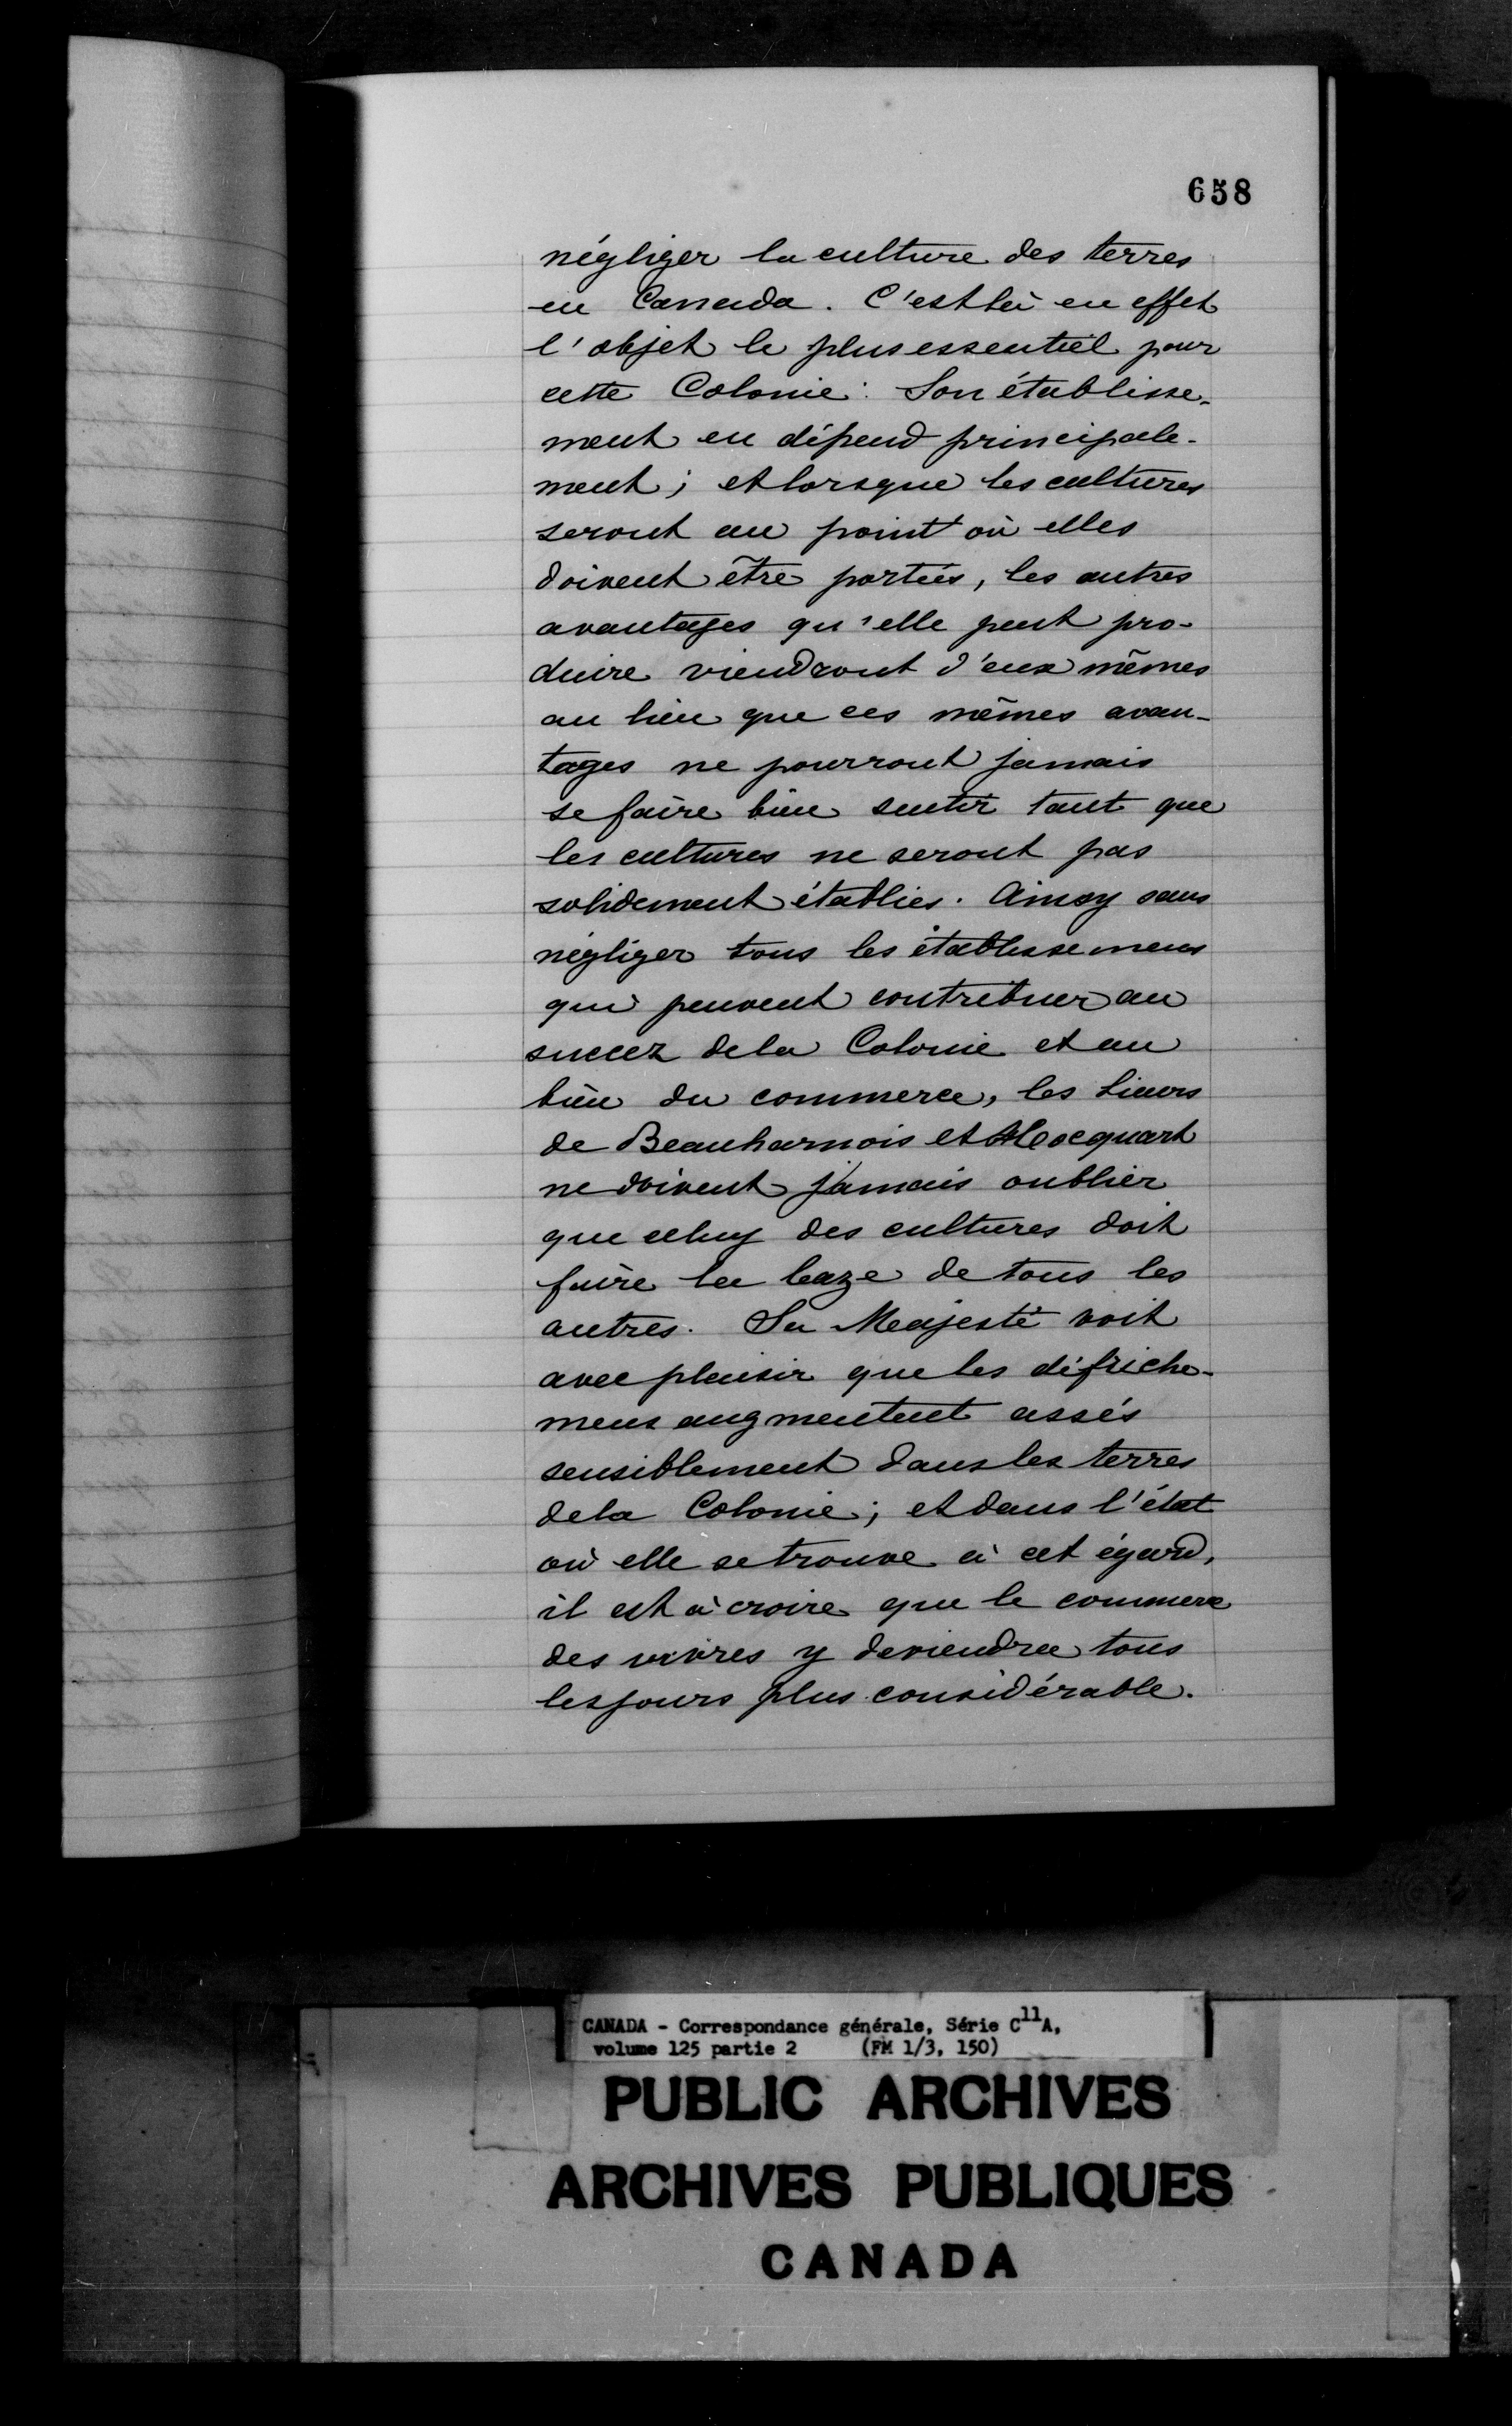 658
négliger la culture des terres
en Canada. C'est là en effet
l'objet le plus essentiel pour
cette Colonie: Son établisse-
ment en dépend principale-
ment; et lorsque les cultures
seront au point où elles
doivent être portées, les autres
avantages qu'elle peut pro-
duire viendront d'eux mêmes
au lieu que ces mêmes avan-
tages ne pourront jamais
se faire bien sentir tant que
les cultures ne seront pas
solidement établies. Ainsy sans
négliger tous les établissemens
qui peuvent contribuer au
succez de la Colonie et au
bien du commerce, les Sieurs
de Beauharnois et Hocquart
ne doivent jamais oublier
que celuy des cultures doit
faire la baze de tous les
autres. Sa Majesté voit
avec plaisir que les défriche-
mens augmentent assés
sensiblement dans les terres
de la Colonie; et dans l'état
où elle se trouve à cet égard,
il est à croire que le commerce
des vivres y deviendra tous
les jours plus considérable.
CANADA - Correspondance générale, Série C11A,
volume 125 partie 2 (FM 1/3, 150)
PUBLIC ARCHIVES
ARCHIVES PUBLIQUES
CANADA